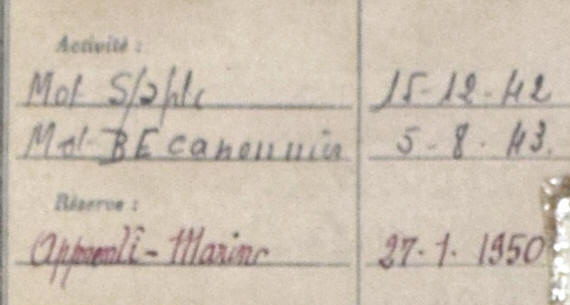 Activité :
Mot S/splc 15-12-42
Mot BE canonnier 5-8-43.
Réserve :
Apprenti-Marin 27.1.1950